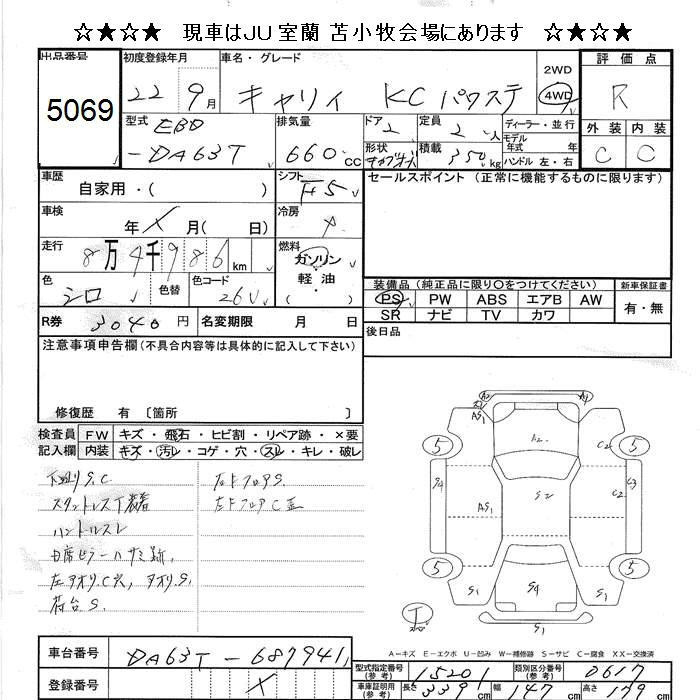 ☆★☆★ 現車はJU室蘭 苫小牧会場にあります ☆★☆★
出品番号
5069
初度登録年月
22 9月
車名・グレード
キャリィ KC パワステ
2WD
4WD
評価点
R
外装 内装
C C
型式
EBD
-DA63T
排気量
660cc
ドア
2
定員
2人
形状
積載
350kg
ディーラー・並行
モデル
年式 年
ハンドル 左・右
車歴
自家用・( )
シフト
F5
セールスポイント (正常に機能するものに限ります)
車検
年 月( 日)
冷房
走行
8万4千986km
燃料
ガソリン
軽油
・( )
色
シロ
色替
色コード
26U
装備品 (純正品に限り○をつけてください)
PS PW ABS エアB AW
SR ナビ TV カワ
新車保証書
有・無
R券 3040円
名変期限 月 日
後日品
注意事項申告欄(不具合内容等は具体的に記入して下さい)
修復歴 有 〔箇所 〕
検査員
記入欄
FW キズ・飛石・ヒビ割・リペア跡・×要
内装 キズ・汚レ・コゲ・穴・スレ・キレ・破レ
下廻りS.C
スタットレス下装着
ハンドルスレ
左アオリ.C穴,アオリ.S.
荷台S.
右FフロアS.
左FフロアC
A2 A1
AS1
A2
C2
5 5
S4
AS1
S2
C2
C3
AS1
5 5
S1
S4
S1
S1
A-キズ E-エクボ U-凹み W-補修跡 S-サビ C-腐食 XX-交換済
車台番号
DA63T-687941
登録番号
型式指定番号
(参考)
15201
類別区分番号
(参考)
0617
車庫証明用
(参考)
長さ 339cm
幅 147cm
高さ 179cm